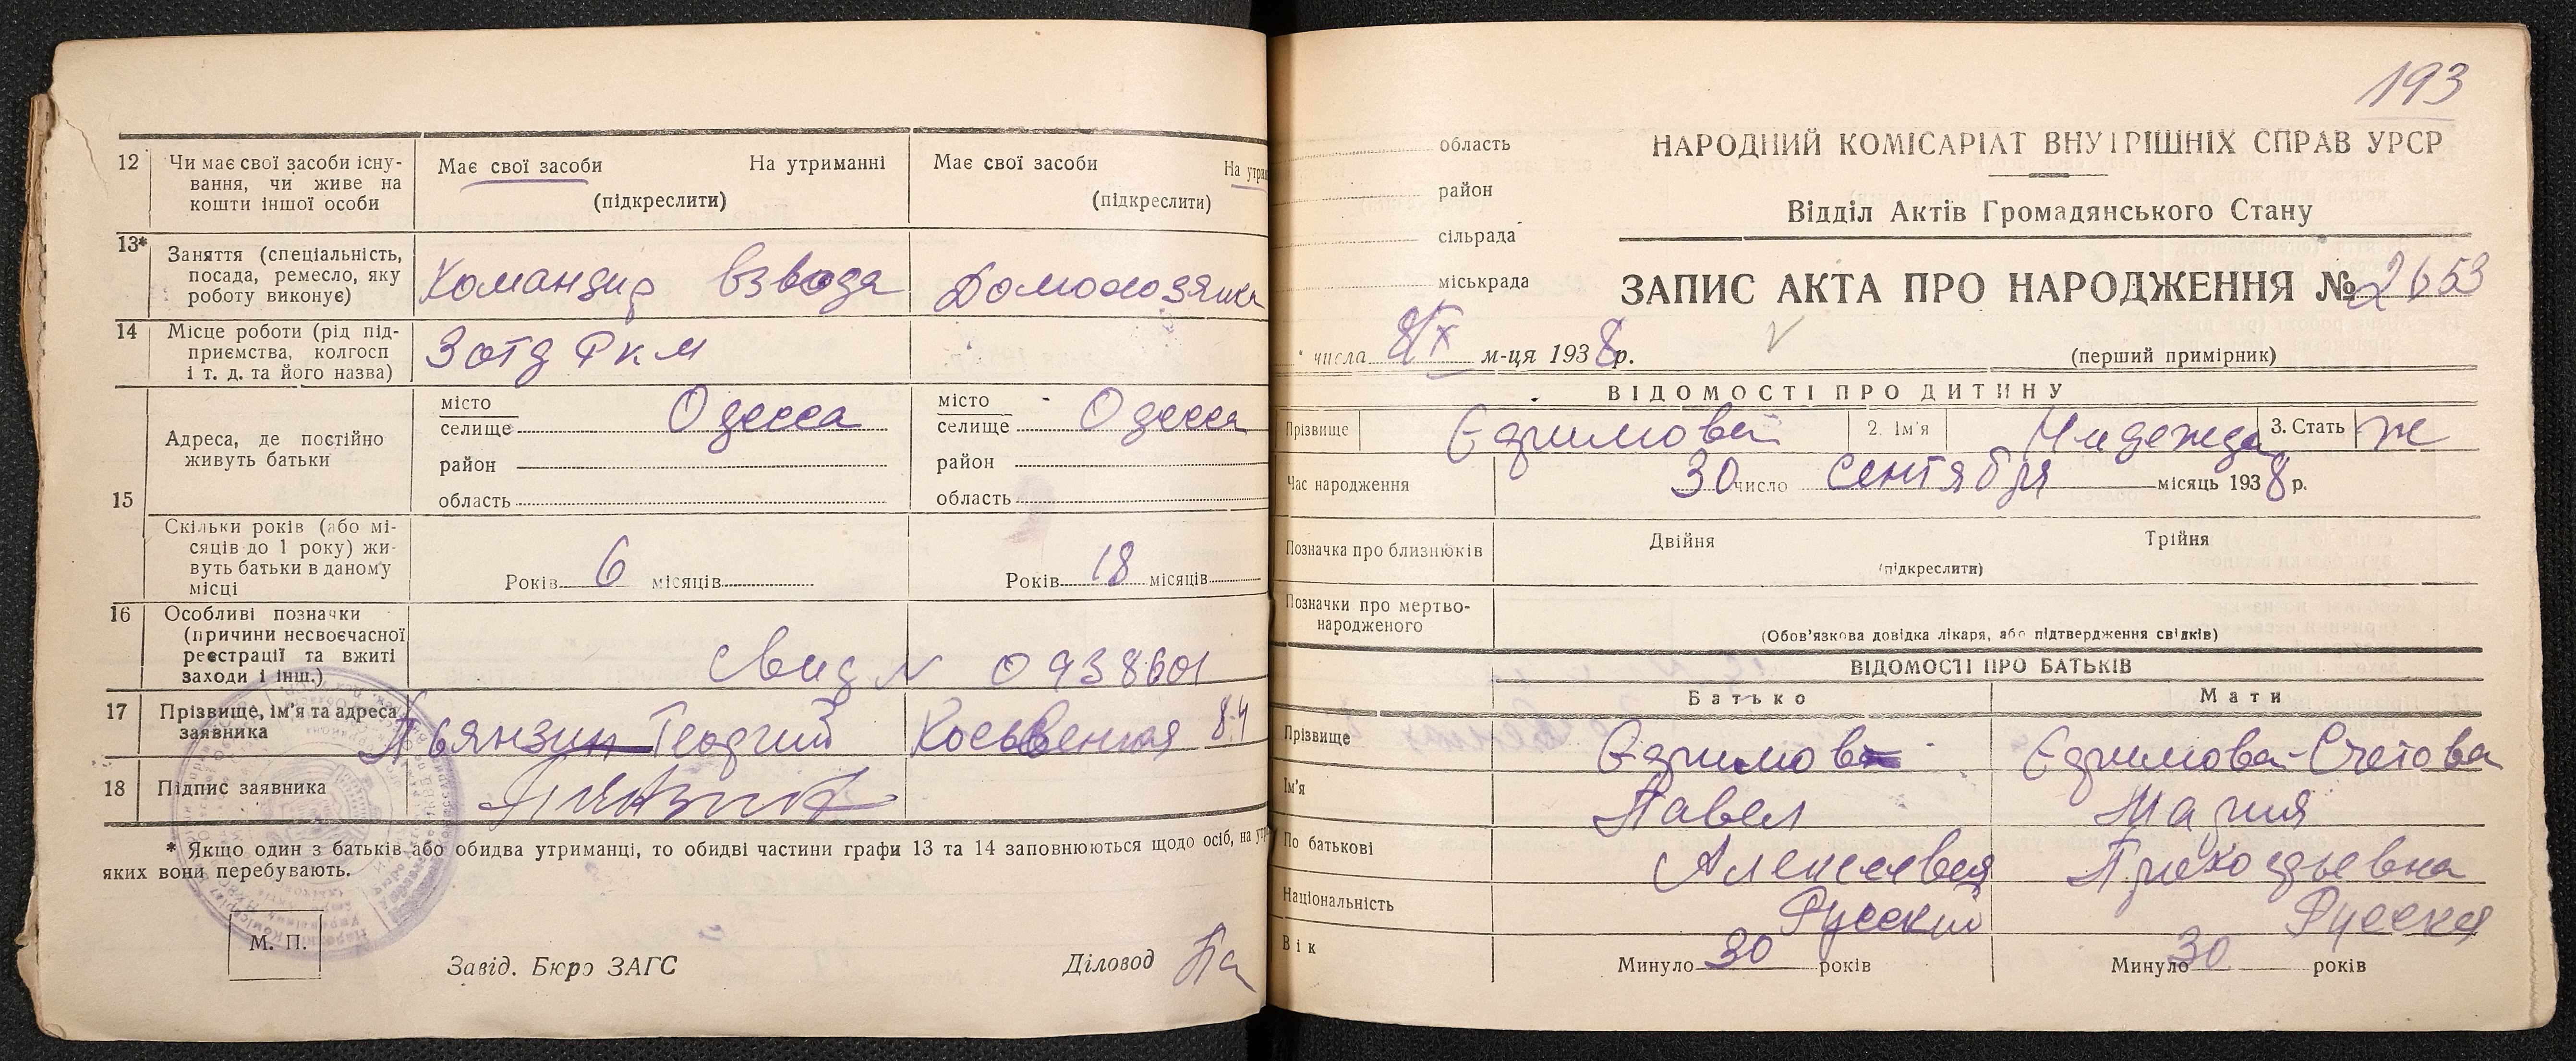 12 Чи має свої засоби існу-
вання, чи живе на
кошти іншої особи
Має свої засоби На утриманні
(підкреслити)
Має свої засоби На утри
(підкреслити)
13* Заняття (спеціальність,
посада, ремесло, яку
роботу виконує)
Командир взвода
Домохозяйка
14 Місце роботи (рід під-
приємства, колгосп
і т. д. та його назва)
3 отд РКМ
15 Адреса, де постійно
живуть батьки
місто
селище Одесса
район
область
місто
селище Одесса
район
область
Скільки років (або мі-
сяців до 1 року) жи-
вуть батьки в даному
місці
Років 6 місяців
Років 18 місяців
16 Особливі позначки
(причини несвоєчасної
реєстрації та вжиті
заходи і інш.)
Свид N 0938601
17 Прізвище, ім'я та адреса
заявника
Пьянзин Георгий Косвенная 84
18 Підпис заявника
* Якщо один з батьків або обидва утриманці, то обидві частини графи 13 та 14 заповнюються щодо осіб, на
яких вони перебувають.
М. П.
Завід. Бюро ЗАГС
Діловод
193
область
район
сільрада
міськрада
НАРОДНИЙ КОМІСАРІАТ ВНУТРІШНІХ СПРАВ УРСР
Відділ Актів Громадянського Стану
ЗАПИС АКТА ПРО НАРОДЖЕННЯ № 2653
числа 8/X м-ця 1938 р.
(перший примірник)
ВІДОМОСТІ ПРО ДИТИНУ
Прізвище Ефимова 2. Ім'я Надежда 3. Стать ж
Час народження 30 число сентября місяць 1938 р.
Позначка про близнюків Двійня Трійня
(підкреслити)
Позначки про мертво-
народженого
(Обов'язкова довідка лікаря, або підтвердження свідків)
ВІДОМОСТІ ПРО БАТЬКІВ
Батько Мати
Прізвище Ефимов Ефимова-Счетова
Ім'я Павел Мария
По батькові Алексеевич
Національність Русский Русская
Вік Минуло 30 років Минуло 30 років